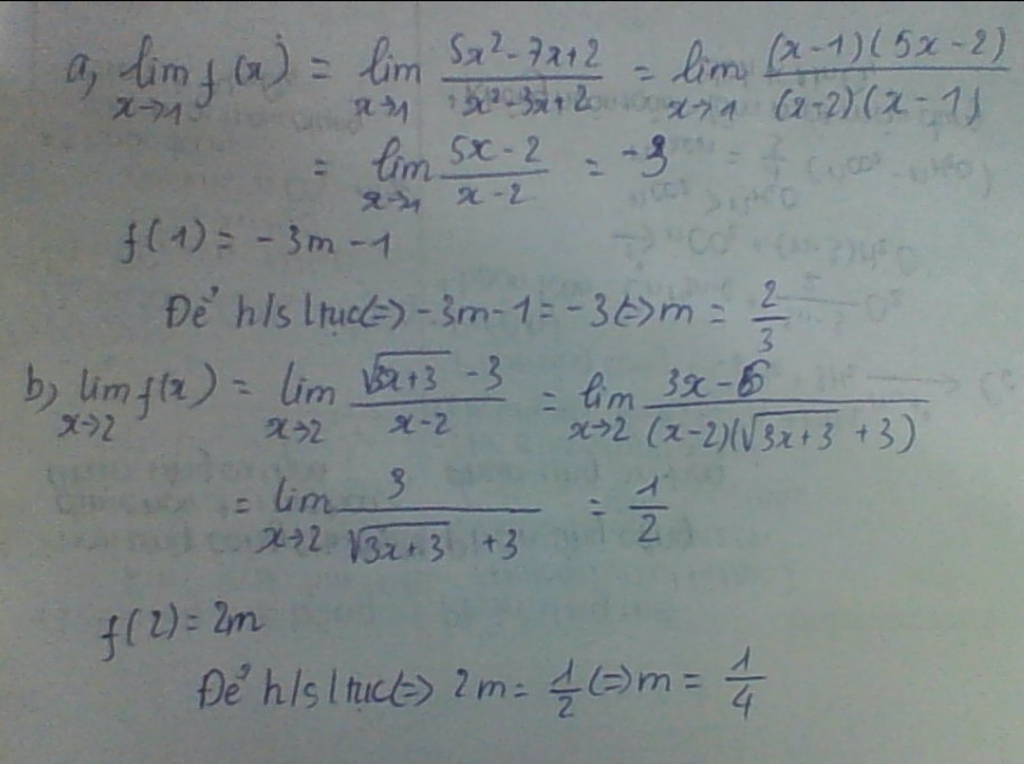 a, lim_{x→1} f(x) = lim_{x→1} (5x²-7x+2)/(x²-3x+2) = lim_{x→1} ((x-1)(5x-2))/((x-2)(x-1))
= lim_{x→1} (5x-2)/(x-2) = -3
f(1) = -3m-1
Để h/s ltục <=> -3m-1 = -3 <=> m = 2/3
b, lim_{x→2} f(x) = lim_{x→2} (√(3x+3) -3)/(x-2) = lim_{x→2} (3x-6)/((x-2)(√(3x+3) +3))
= lim_{x→2} 3/(√(3x+3) +3) = 1/2
f(2) = 2m
Để h/s ltục <=> 2m = 1/2 <=> m = 1/4